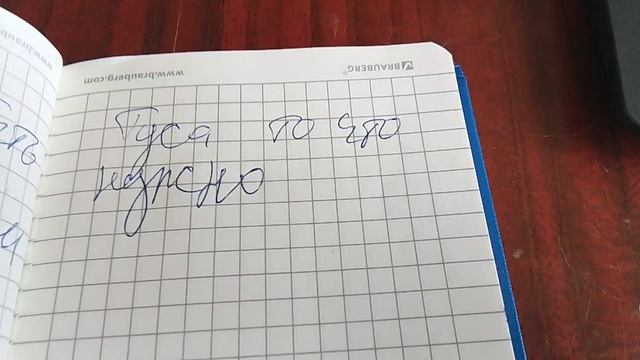 www.brauberg.com
BRAUBERG®
Туса то что
нужно